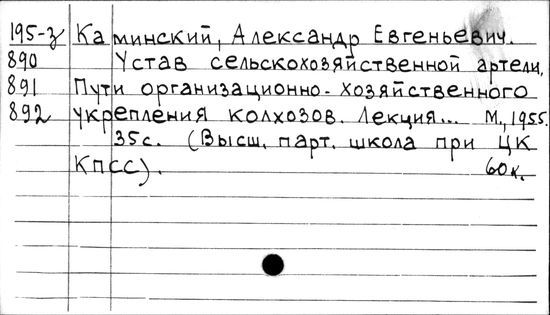 195-з Каминский, Александр Евгеньевич.
890 Устав сельскохозяйственной артели.
891 Пути организационно-хозяйственного
892 укрепления колхозов. Лекция... М., 1955.
35с. (Высш. парт. школа при ЦК
КПСС). 60к.